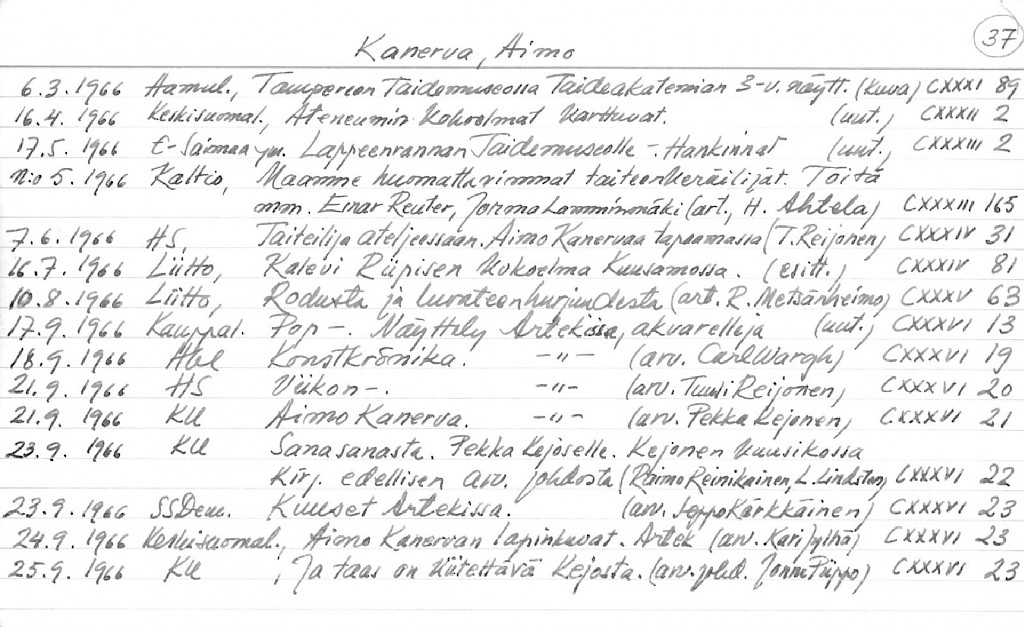 37
Kanerva, Aimo
6.3.1966 Hamul., Tampereen Taidemuseossa Taideakatemian 3-v. näytt. (kuva) CXXXI 89
16.4.1966 Keskisuomal., Ateneumin kokoelmat karttuvat. (uut.) CXXXII 2
17.5.1966 E-Saimaa ym. Lappeenrannan Taidemuseolle -. Hankinnat (uut., CXXXIII 2
n:o 5.1966 Kaltio, Maamme huomattavimmat taiteenkeräilijät. Töitä
mm. Einar Reuter, Jorma Lamminmäki (art., H. Ahtela) CXXXIII 165
7.6.1966 HS, Taiteilija ateljeessaan. Aimo Kanervaa tapaamassa (T. Reijonen) CXXXIV 31
16.7.1966 Liitto, Kalevi Riipisen kokoelma Kuusamossa. (esitt.) CXXXIV 81
10.8.1966 Liitto, Rodusta ja luvattomhurjuudesta (art. R. Metsänheimo) CXXXV 63
17.9.1966 Kauppal. Pop -. Näyttely Artekissa, akvarelleja (uut.) CXXXVI 13
18.9.1966 Hbl Konstkrönika. -"- (arv. Carl Wargh) CXXXVI 19
21.9.1966 HS Viikon -. -"- (arv. Tuusi Reijonen) CXXXVI 20
21.9.1966 KU Aimo Kanerva. -"- (arv. Pekka Kejonen) CXXXVI 21
23.9.1966 KU Sana sanasta. Pekka Kejoselle. Kejonen Kuusikossa
Kirj. edellisen arv. johdosta (Raimo Reinikainen, L. Lindsten) CXXXVI 22
23.9.1966 SSDem. Kuuset Artekissa. (arv. Seppo Kärkkäinen) CXXXVI 23
24.9.1966 Keskisuomal., Aimo Kanervan lapinkuvat. Artek (arv. Kari Jylhä) CXXXVI 23
25.9.1966 KU, Ja taas on kiitettävä Kejosta. (arv. johd. Jonni Piippo) CXXXVI 23